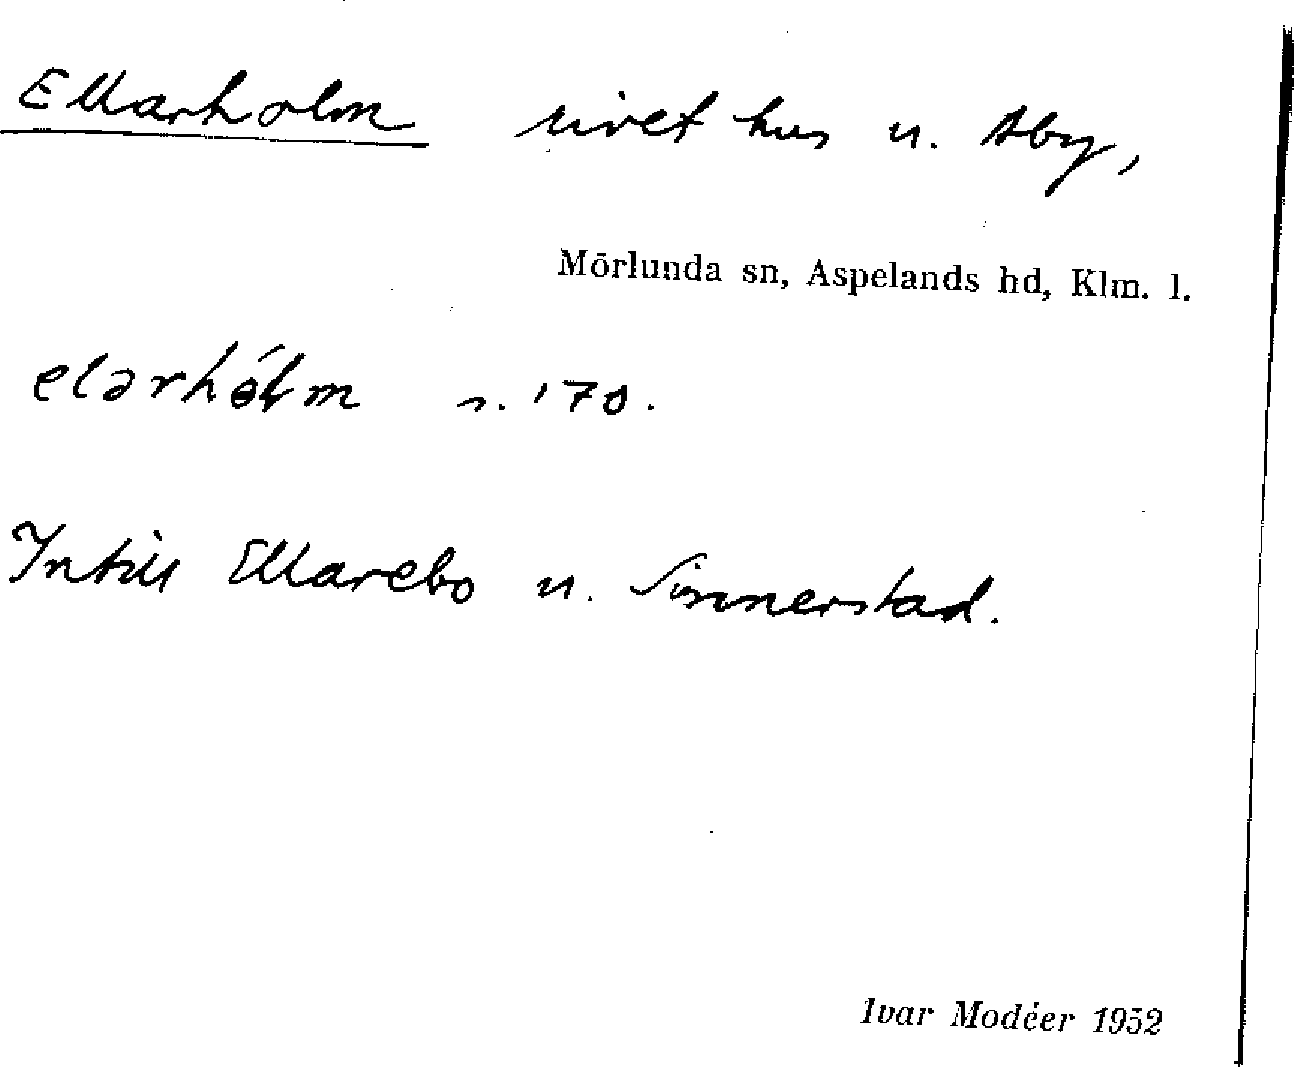 Ellarholm rivet hus u. Åby,
Mörlunda sn, Aspelands hd, Klm. l.
elarhólm s. '70.
Intill Ellarebo u. Sinnerstad.
Ivar Modéer 1952